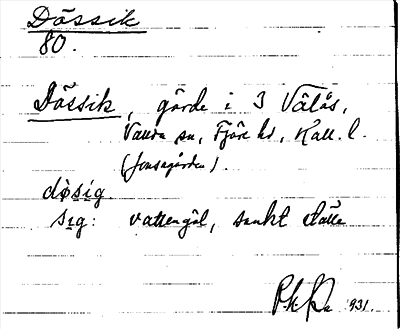 Dässik
80.
Dässik, gärde i 3 Välås,
Valda sn, Fjäre hd, Hall. l.
(Jonsagården).
dø̀sig.
sig: vattengöl, sankt ställe
1931.